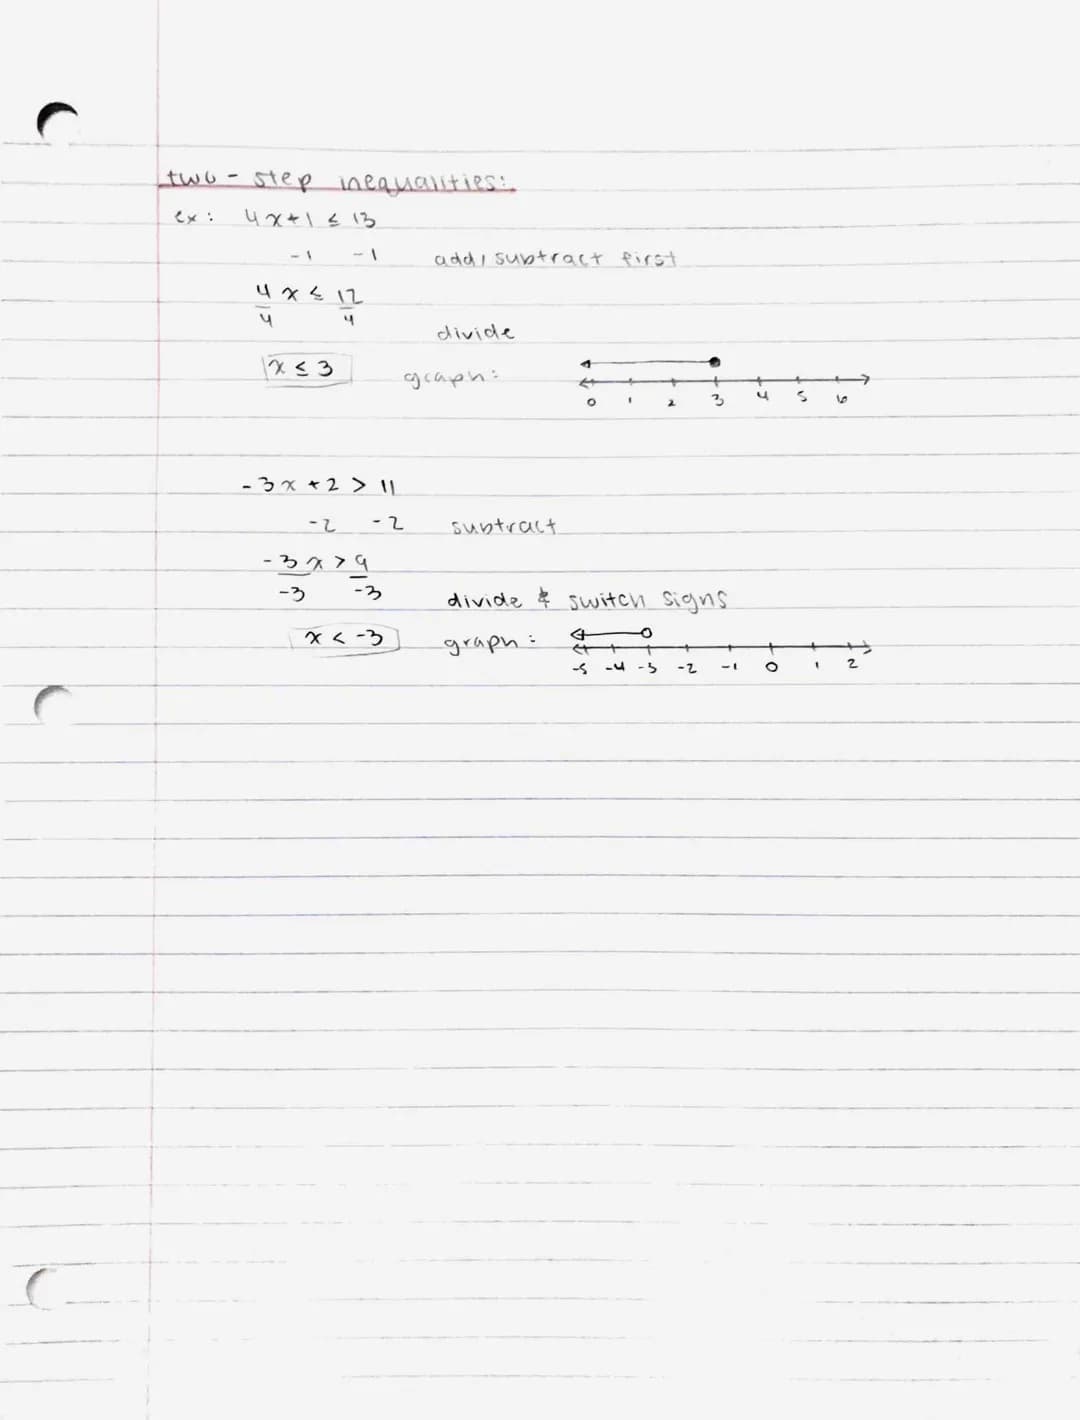 two-step inequalities:
ex: 4x+1 ≤ 13
-1 -1 add/subtract first
4x ≤ 12
4 4
divide
x ≤ 3 graph:
0 1 2 3 4 5 6
-3x +2 > 11
-2 -2 subtract
-3x > 9
-3 -3
divide & switch signs
x < -3 graph:
-5 -4 -3 -2 -1 0 1 2